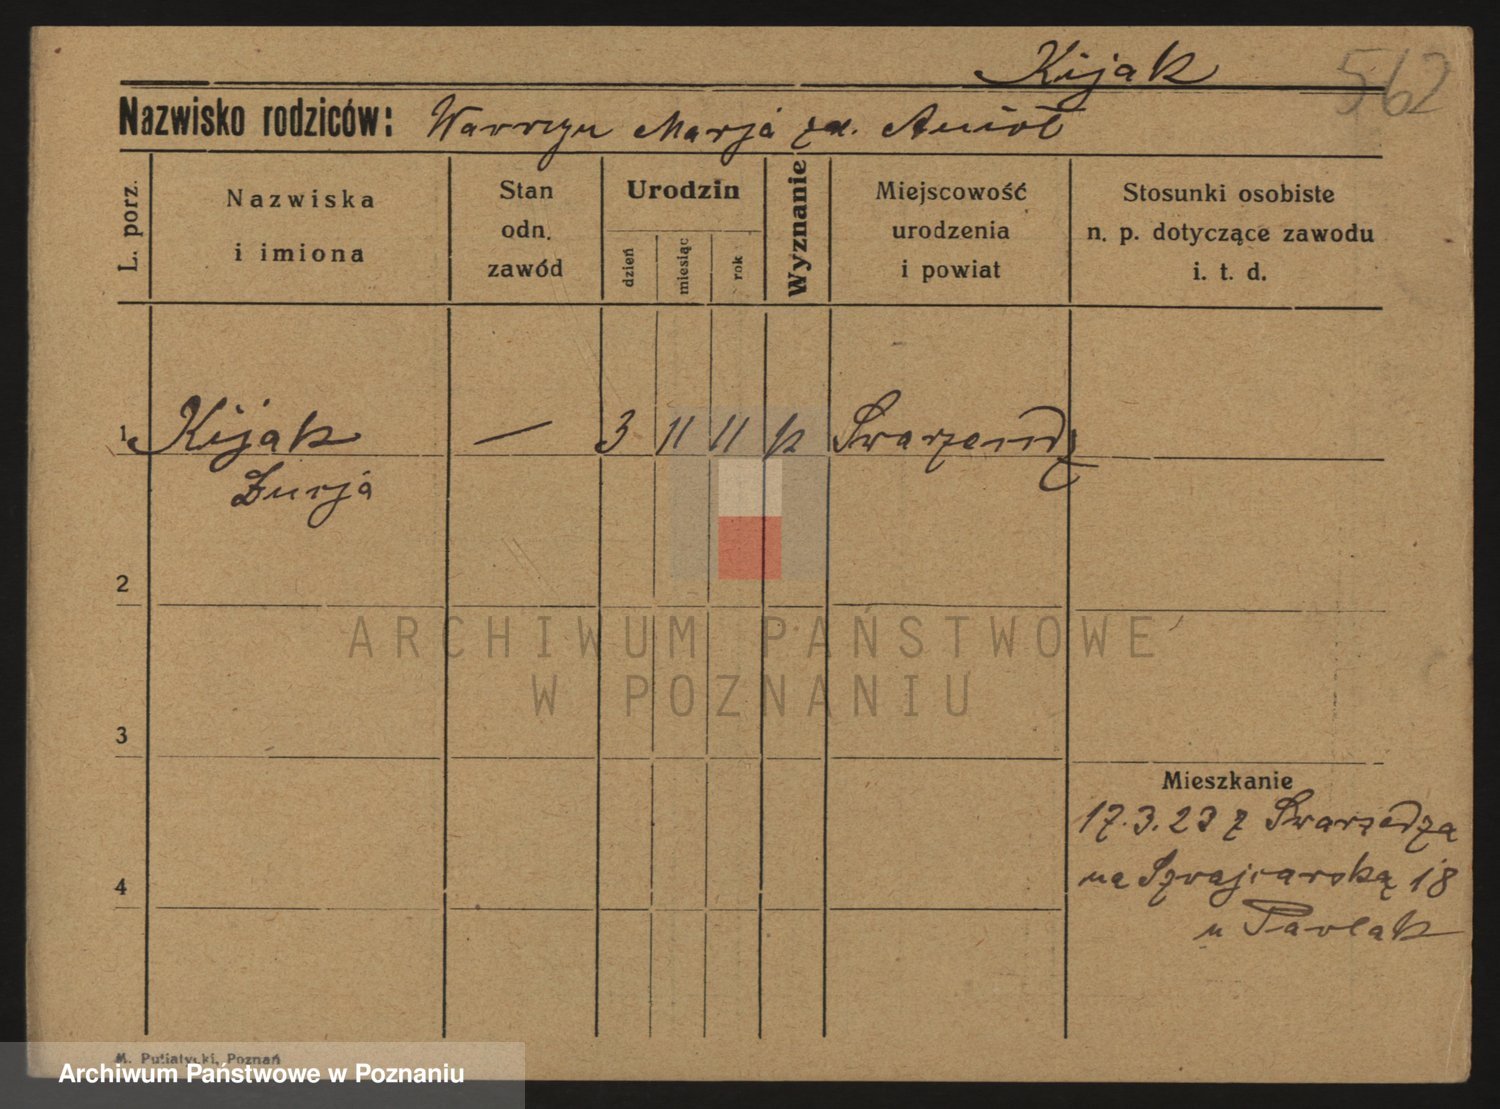 Kijak
562
Nazwisko rodziców: Wawrzyn Marja zd. Anioł
L. porz.
Nazwiska
i imiona
Stan
odn.
zawód
Urodzin
dzień
miesiąc
rok
Wyznanie
Miejscowość
urodzenia
i powiat
Stosunki osobiste
n. p. dotyczące zawodu
i. t. d.
1 Kijak — 3 11 11 k Swarzendz
2
3
4
Mieszkanie
17.3.23 z Swarzędza
na Szwajcarską 18
u Pawlak
ARCHIWUM PAŃSTWOWE
W POZNANIU
M. Putiatycki, Poznań
Archiwum Państwowe w Poznaniu